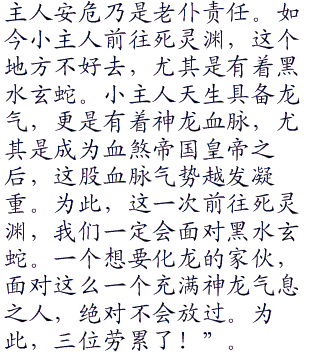 主人安危乃是老仆责任。如
今小主人前往死灵渊，这个
地方不好去，尤其是有着黑
水玄蛇。小主人天生具备龙
气，更是有着神龙血脉，尤
其是成为血煞帝国皇帝之
后，这股血脉气势越发凝
重。为此，这一次前往死灵
渊，我们一定会面对黑水玄
蛇。一个想要化龙的家伙，
面对这么一个充满神龙气息
之人，绝对不会放过。为
此，三位劳累了！”。